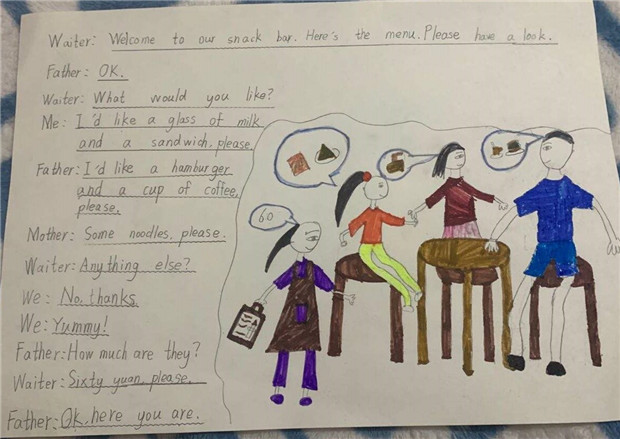 Waiter: Welcome to our snack bar. Here's the menu. Please have a look.
Father: OK.
Waiter: What would you like?
Me: I'd like a glass of milk
and a sandwich, please.
Father: I'd like a hamburger
and a cup of coffee,
please.
Mother: Some noodles, please.
Waiter: Anything else?
We: No, thanks.
We: Yummy!
Father: How much are they?
Waiter: Sixty yuan, please.
Father: Ok, here you are.
60